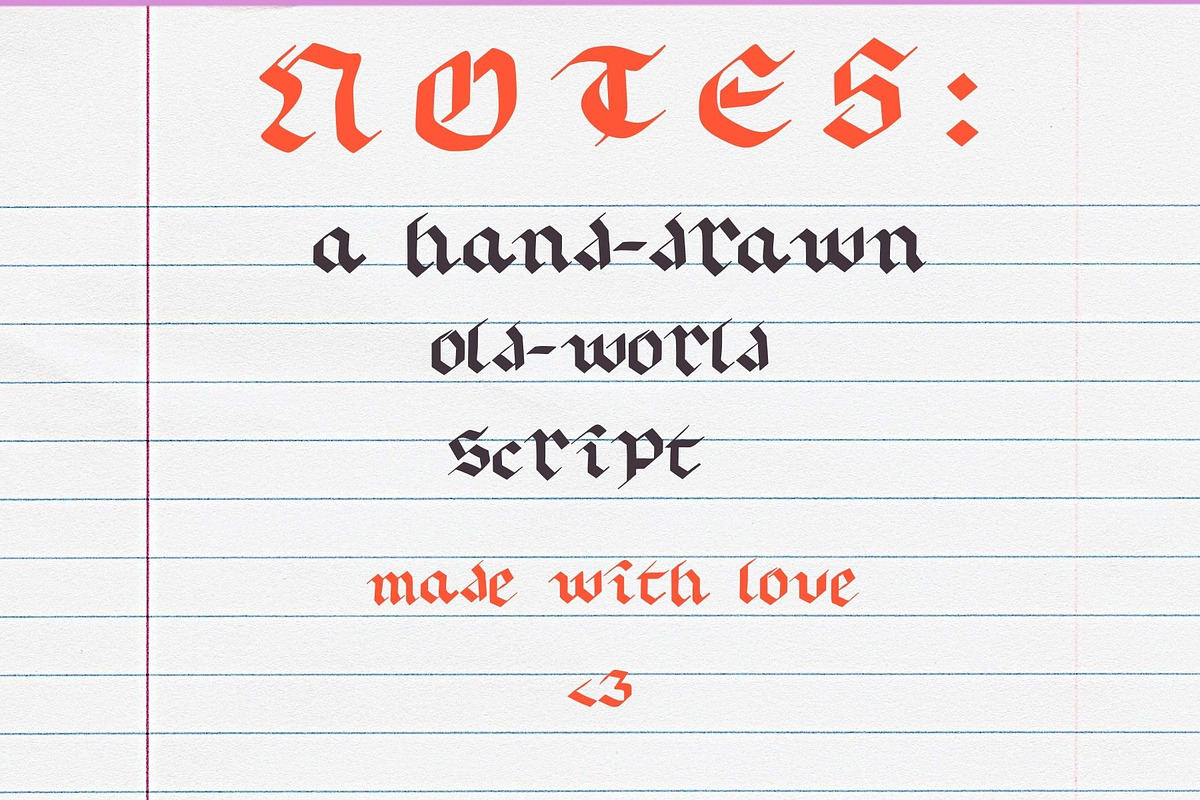 NOTES:
a hand-drawn
old-world
script
made with love
<3